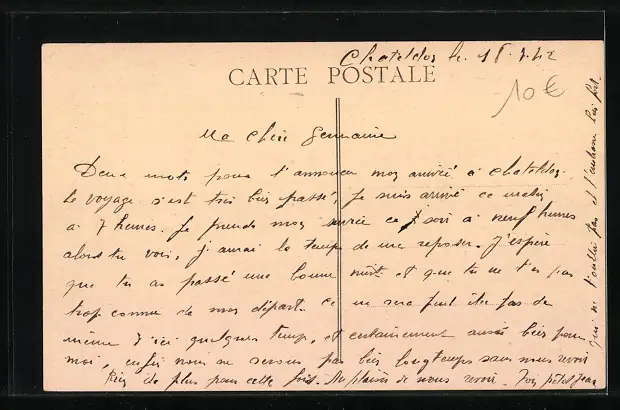 Chateldon le 18.7.42
CARTE POSTALE
10€
Ma Chère Germaine
Deux mots pour t'annoncer mon arrivée à Chateldon.
Le voyage s'est très bien passé, je suis arrivé ce matin
à 7 heures. Je prends mon service ce soir à neuf heures
alors tu vois, j'aurai le temps de me reposer. J'espère
que tu as passé une bonne nuit et que tu ne t'en pas
trop comme de mon départ. Ce ne sera peut être pas de
même d'ici quelques temps, et certainement aussi bien pour
moi, enfin nous ne serons pas bien longtemps sans nous revoir
Rien de plus pour cette fois. Au plaisir de nous revoir. Ton Jean
qui ne t'oublie pas et t'embrasse bien fort.